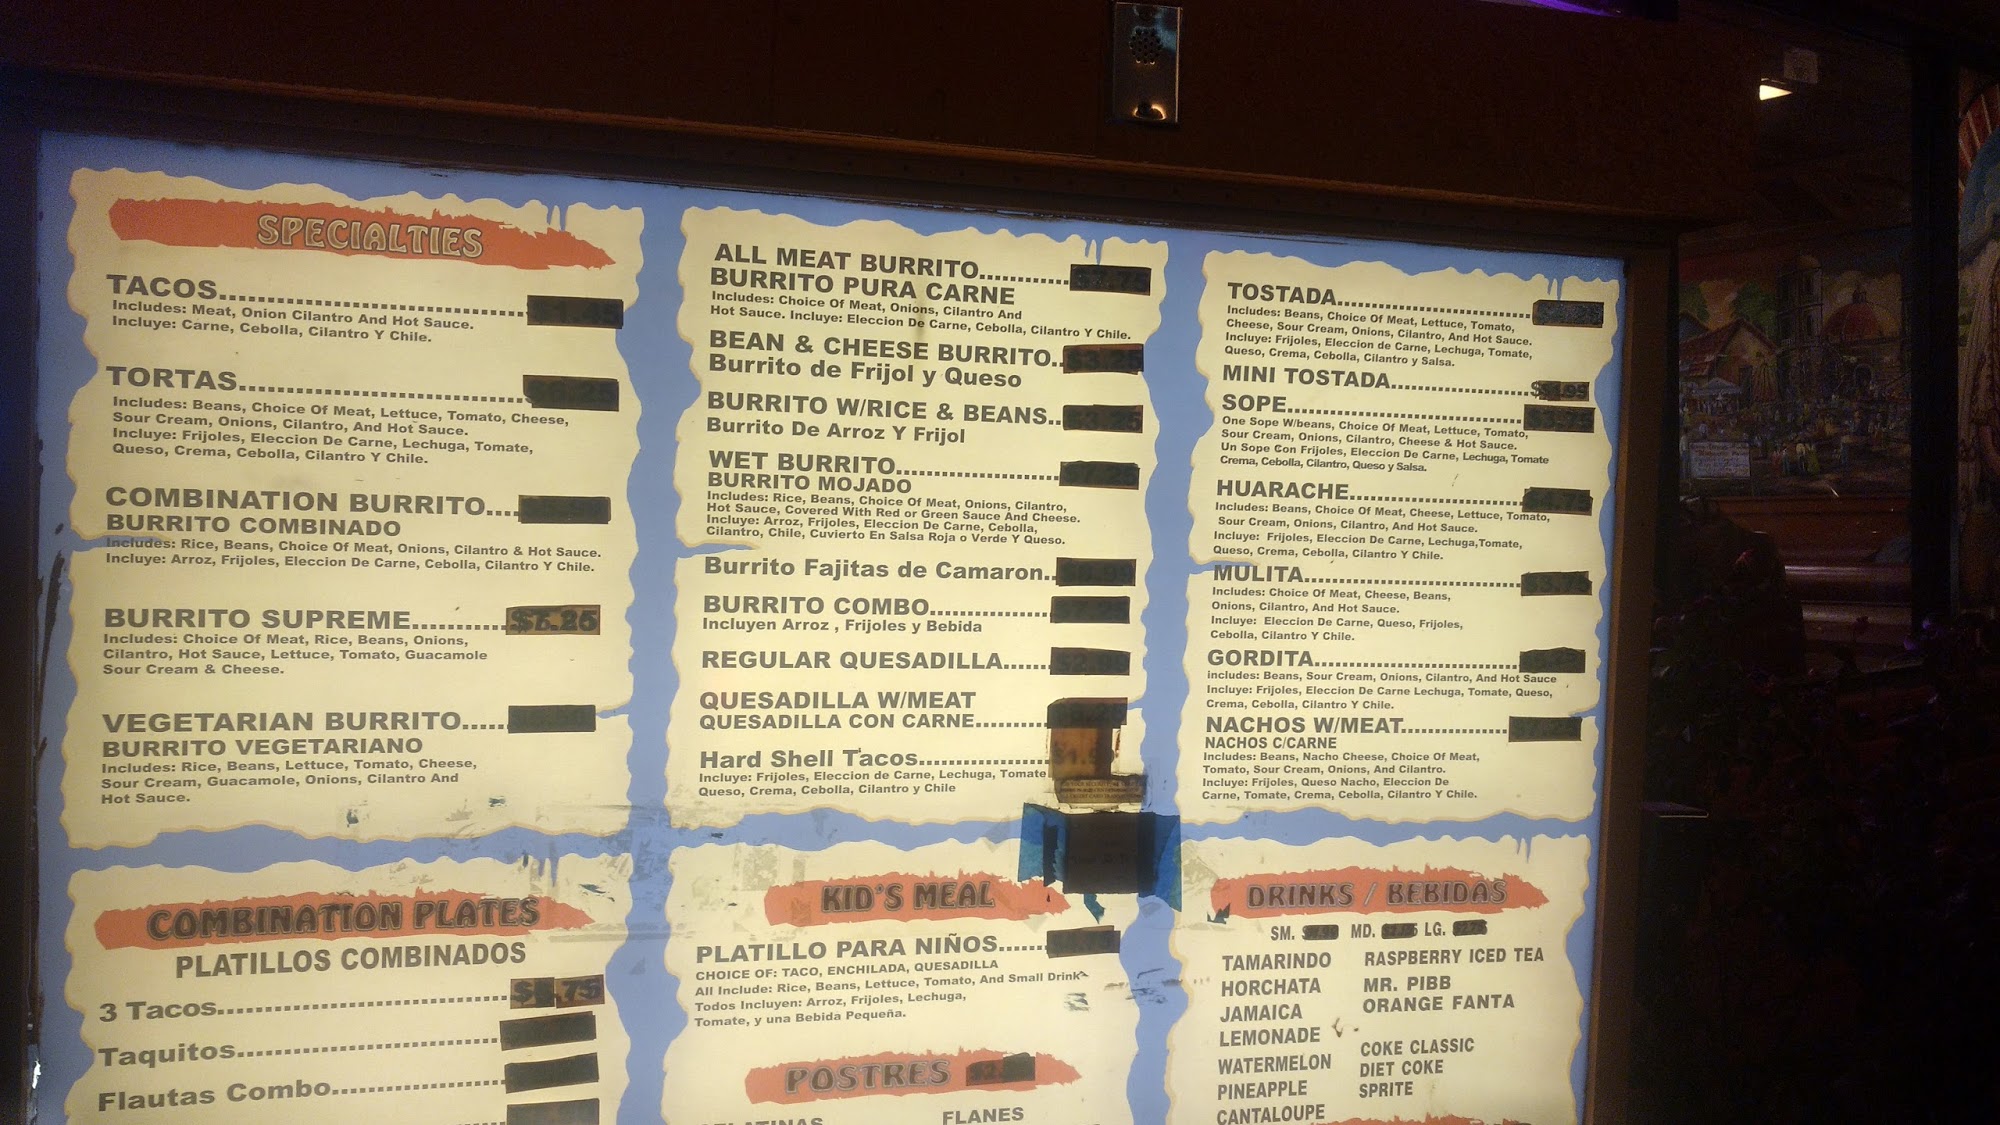 SPECIALTIES
TACOS
Includes: Meat, Onion Cilantro And Hot Sauce.
Incluye: Carne, Cebolla, Cilantro Y Chile.
TORTAS
Includes: Beans, Choice Of Meat, Lettuce, Tomato, Cheese,
Sour Cream, Onions, Cilantro, And Hot Sauce.
Incluye: Frijoles, Eleccion De Carne, Lechuga, Tomate,
Queso, Crema, Cebolla, Cilantro Y Chile.
COMBINATION BURRITO....
BURRITO COMBINADO
Includes: Rice, Beans, Choice Of Meat, Onions, Cilantro & Hot Sauce.
Incluye: Arroz, Frijoles, Eleccion De Carne, Cebolla, Cilantro Y Chile.
BURRITO SUPREME
Includes: Choice Of Meat, Rice, Beans, Onions,
Cilantro, Hot Sauce, Lettuce, Tomato, Guacamole
Sour Cream & Cheese.
VEGETARIAN BURRITO
BURRITO VEGETARIANO
Includes: Rice, Beans, Lettuce, Tomato, Cheese,
Sour Cream, Guacamole, Onions, Cilantro And
Hot Sauce.
ALL MEAT BURRITO
BURRITO PURA CARNE
Includes: Choice Of Meat, Onions, Cilantro And
Hot Sauce. Incluye: Eleccion De Carne, Cebolla, Cilantro Y Chile.
BEAN & CHEESE BURRITO.. $3.25
Burrito de Frijol y Queso
BURRITO W/RICE & BEANS..
Burrito De Arroz Y Frijol
WET BURRITO
BURRITO MOJADO
Includes: Rice, Beans, Choice Of Meat, Onions, Cilantro,
Hot Sauce, Covered With Red or Green Sauce And Cheese.
Incluye: Arroz, Frijoles, Eleccion De Carne, Cebolla,
Cilantro, Chile, Cuvierto En Salsa Roja o Verde Y Queso.
Burrito Fajitas de Camaron..
BURRITO COMBO
Incluyen Arroz , Frijoles y Bebida
REGULAR QUESADILLA
QUESADILLA W/MEAT
QUESADILLA CON CARNE
Hard Shell Tacos
Incluye: Frijoles, Eleccion de Carne, Lechuga, Tomate
Queso, Crema, Cebolla, Cilantro y Chile
TOSTADA
Includes: Beans, Choice Of Meat, Lettuce, Tomato,
Cheese, Sour Cream, Onions, Cilantro, And Hot Sauce.
Incluye: Frijoles, Eleccion de Carne, Lechuga, Tomate,
Queso, Crema, Cebolla, Cilantro y Salsa.
MINI TOSTADA
SOPE
One Sope W/beans, Choice Of Meat, Lettuce, Tomato,
Sour Cream, Onions, Cilantro, Cheese & Hot Sauce.
Un Sope Con Frijoles, Eleccion De Carne, Lechuga, Tomate
Crema, Cebolla, Cilantro, Queso y Salsa.
HUARACHE
Includes: Beans, Choice Of Meat, Cheese, Lettuce, Tomato,
Sour Cream, Onions, Cilantro, And Hot Sauce.
Incluye: Frijoles, Eleccion De Carne, Lechuga,Tomate,
Queso, Crema, Cebolla, Cilantro Y Chile.
MULITA
Includes: Choice Of Meat, Cheese, Beans,
Onions, Cilantro, And Hot Sauce.
Incluye: Eleccion De Carne, Queso, Frijoles,
Cebolla, Cilantro Y Chile.
GORDITA
includes: Beans, Sour Cream, Onions, Cilantro, And Hot Sauce
Incluye: Frijoles, Eleccion De Carne Lechuga, Tomate, Queso,
Crema, Cebolla, Cilantro Y Chile.
NACHOS W/MEAT
NACHOS C/CARNE
Includes: Beans, Nacho Cheese, Choice Of Meat,
Tomato, Sour Cream, Onions, And Cilantro.
Incluye: Frijoles, Queso Nacho, Eleccion De
Carne, Tomate, Crema, Cebolla, Cilantro Y Chile.
COMBINATION PLATES
PLATILLOS COMBINADOS
3 Tacos
Taquitos
Flautas Combo
KID'S MEAL
PLATILLO PARA NIÑOS
CHOICE OF: TACO, ENCHILADA, QUESADILLA
All Include: Rice, Beans, Lettuce, Tomato, And Small Drink
Todos Incluyen: Arroz, Frijoles, Lechuga,
Tomate, y una Bebida Pequeña.
POSTRES
FLANES
DRINKS / BEBIDAS
SM. MD. LG.
TAMARINDO
HORCHATA
JAMAICA
LEMONADE
WATERMELON
PINEAPPLE
CANTALOUPE
RASPBERRY ICED TEA
MR. PIBB
ORANGE FANTA
COKE CLASSIC
DIET COKE
SPRITE